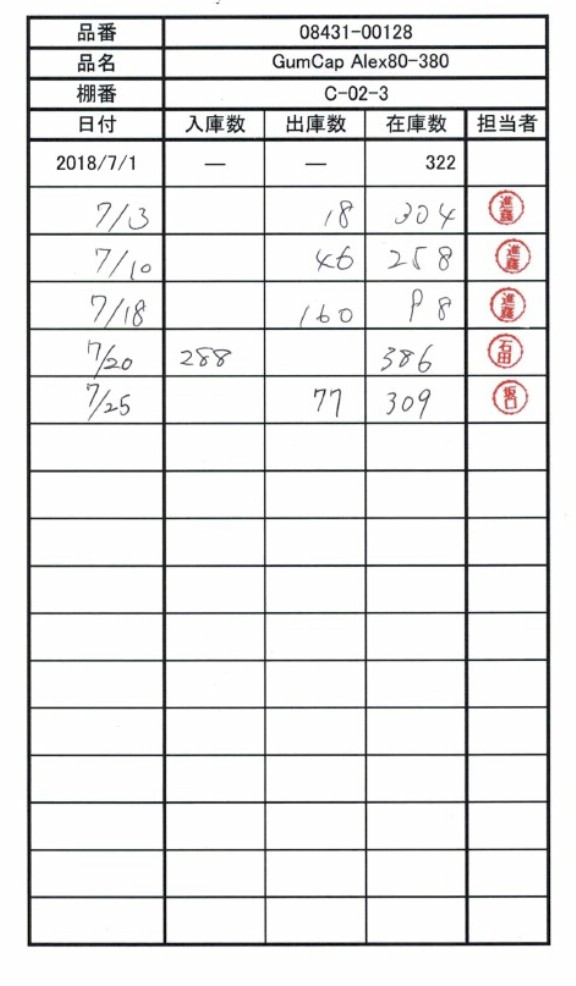 品番 08431-00128
品名 GumCap Alex80-380
棚番 C-02-3
日付 入庫数 出庫数 在庫数 担当者
2018/7/1 — — 322
7/3 18 304 進藤
7/10 46 258 進藤
7/18 160 98 進藤
7/20 288 386 石田
7/25 77 309 坂口